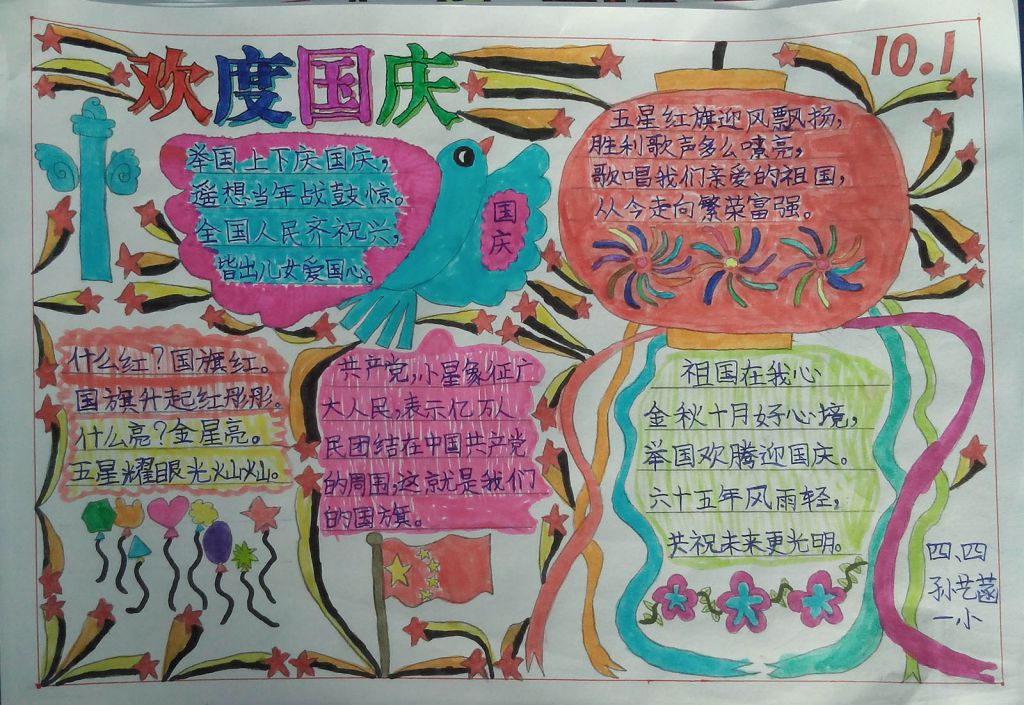 欢度国庆
10.1
举国上下庆国庆，
遥想当年战鼓惊。
全国人民齐祝兴，
皆出儿女爱国心。
国庆
五星红旗迎风飘扬，
胜利歌声多么嘹亮，
歌唱我们亲爱的祖国，
从今走向繁荣富强。
什么红？国旗红。
国旗升起红彤彤。
什么亮？金星亮。
五星耀眼光灿灿。
共产党，小星象征广
大人民，表示亿万人
民团结在中国共产党
的周围，这就是我们
的国旗。
祖国在我心
金秋十月好心境，
举国欢腾迎国庆。
六十五年风雨轻，
共祝未来更光明。
四、四
孙艺菡
一小